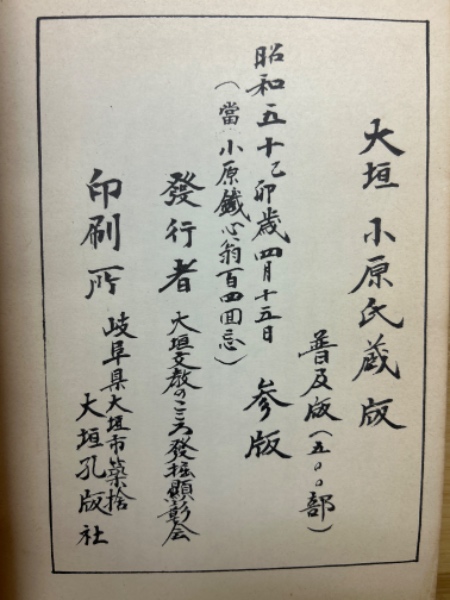 大垣 小原氏蔵版
普及版(五〇〇部)
昭和五十乙卯歳四月十五日 参版
(當小原鐵心翁百四囬忌)
發行者 大垣文教のこころ發掘顯彰会
印刷所 岐阜県大垣市築捨
大垣孔版社